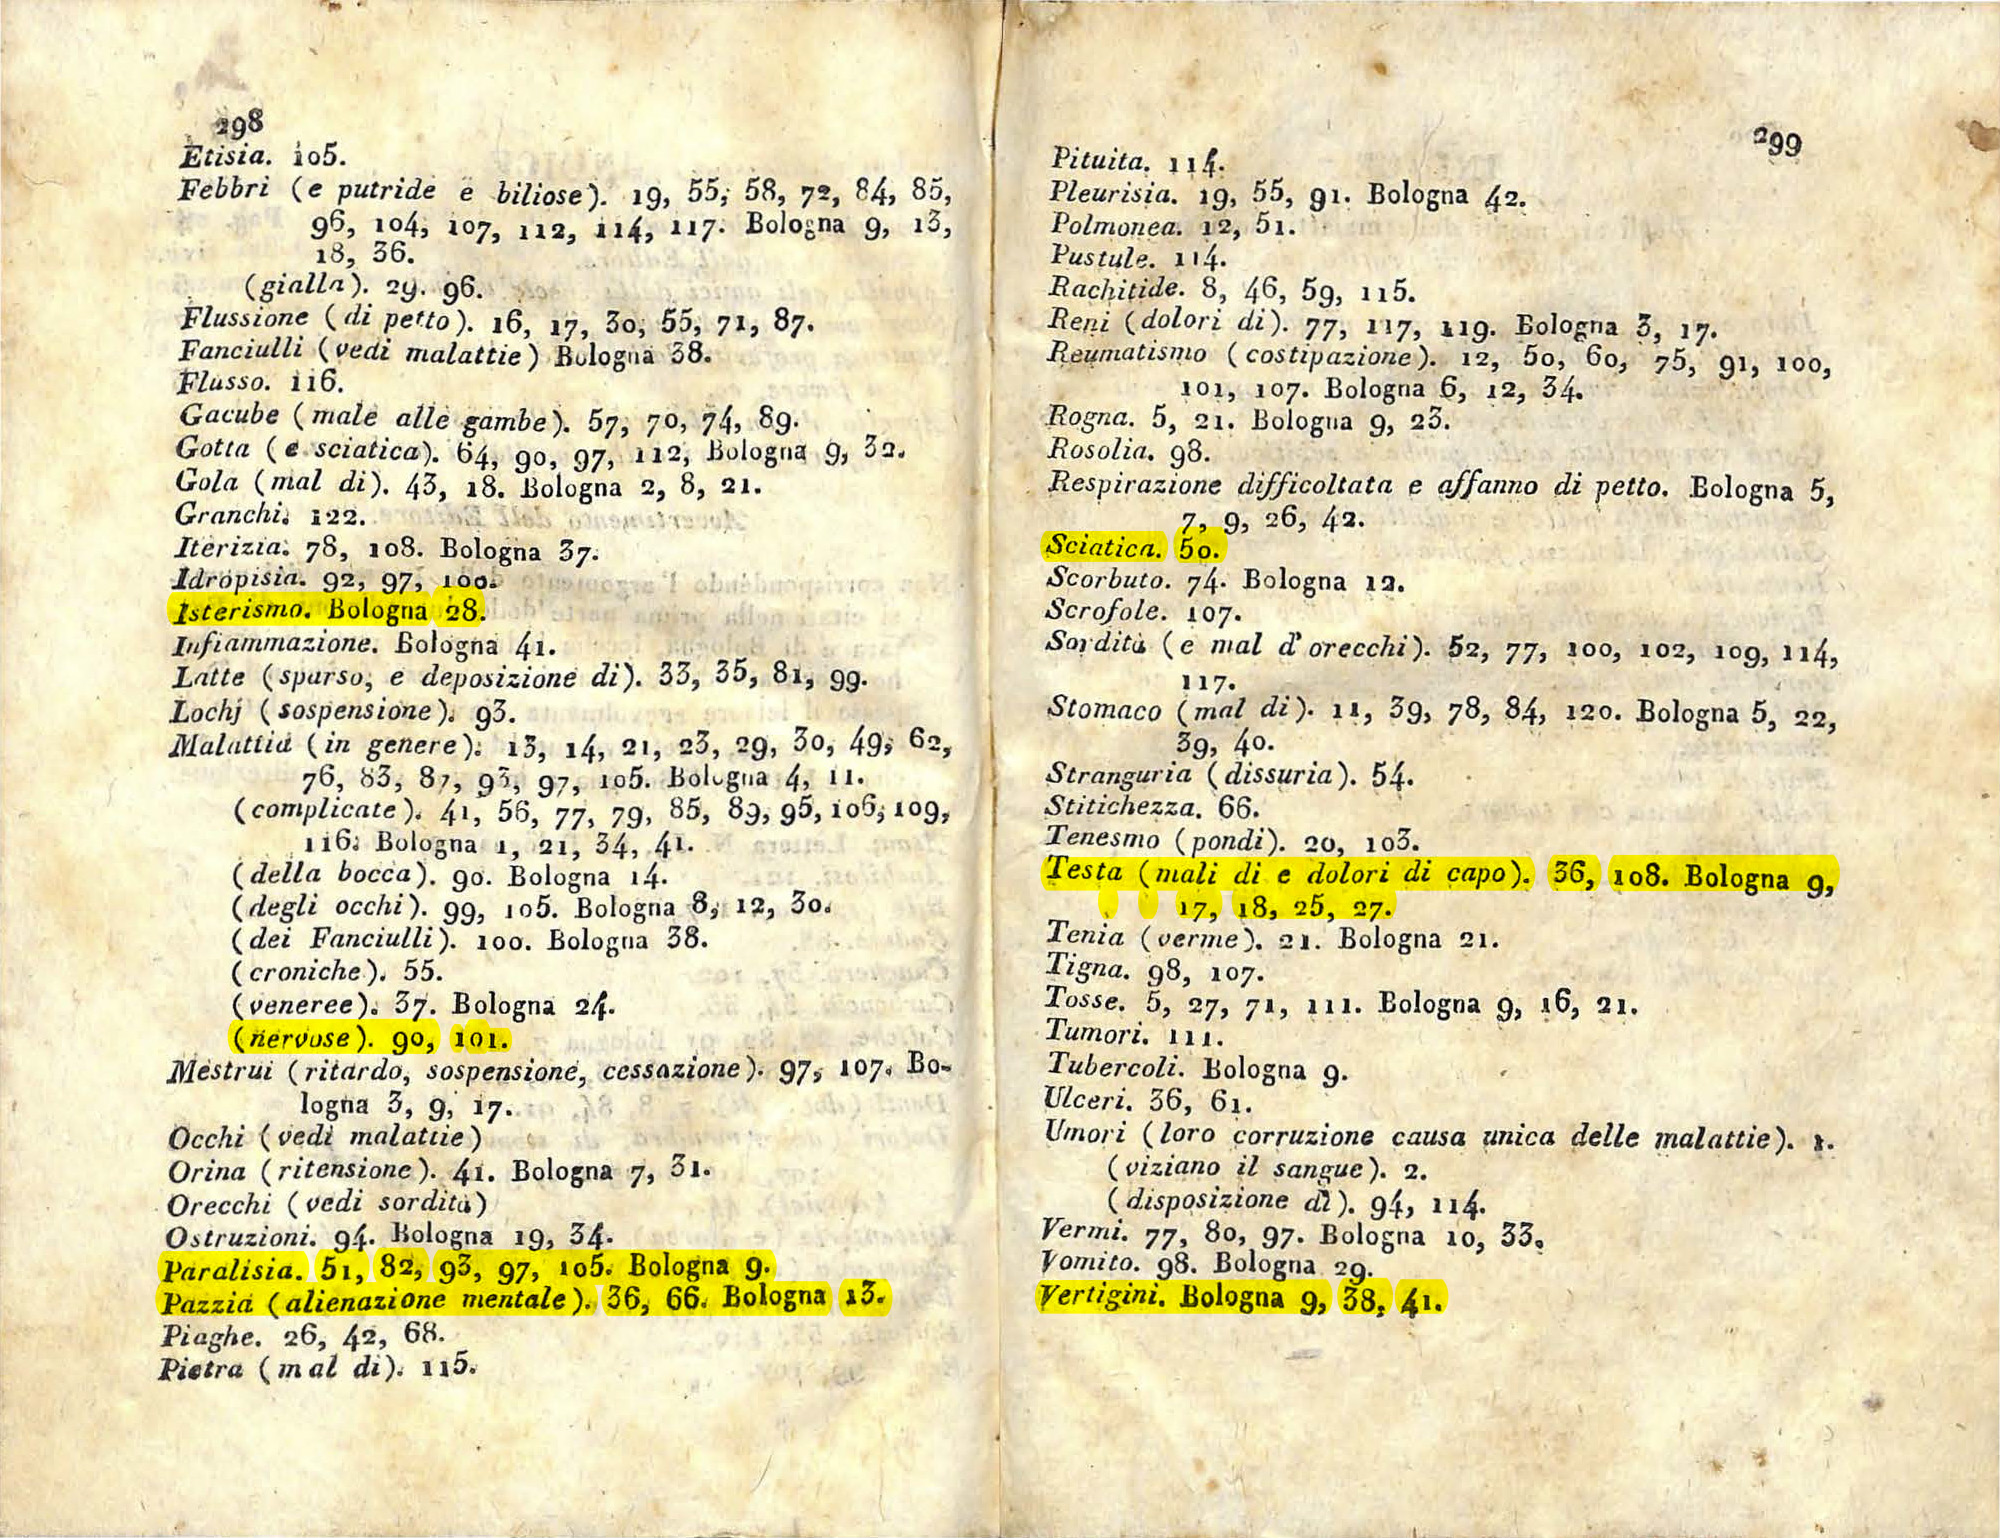 298
Etisia. 105.
Febbri (e putride e biliose). 19, 55, 58, 72, 84, 85,
96, 104, 107, 112, 114, 117. Bologna 9, 13,
18, 36.
(gialla). 29. 96.
Flussione (di petto). 16, 17, 30, 55, 71, 87.
Fanciulli (vedi malattie) Bologna 38.
Flusso. 116.
Gacube (male alle gambe). 57, 70, 74, 89.
Gotta (e sciatica). 64, 90, 97, 112, Bologna 9, 32.
Gola (mal di). 43, 18. Bologna 2, 8, 21.
Granchi. 122.
Iterizia. 78, 108. Bologna 37.
Idropisia. 92, 97, 100.
Isterismo. Bologna 28.
Infiammazione. Bologna 41.
Latte (sparso, e deposizione di). 33, 35, 81, 99.
Lochj (sospensione). 93.
Malattia (in genere). 13, 14, 21, 23, 29, 30, 49, 62,
76, 83, 87, 93, 97, 105. Bologna 4, 11.
(complicate). 41, 56, 77, 79, 85, 89, 95, 106, 109,
116. Bologna 1, 21, 34, 41.
(della bocca). 90. Bologna 14.
(degli occhi). 99, 105. Bologna 8, 12, 30.
(dei Fanciulli). 100. Bologna 38.
(croniche). 55.
(veneree). 37. Bologna 24.
(nervose). 90, 101.
Mestrui (ritardo, sospensione, cessazione). 97, 107. Bo-
logna 3, 9, 17.
Occhi (vedi malattie)
Orina (ritensione). 41. Bologna 7, 31.
Orecchi (vedi sordità)
Ostruzioni. 94. Bologna 19, 34.
Paralisia. 51, 82, 93, 97, 105. Bologna 9.
Pazzia (alienazione mentale). 36, 66. Bologna 13.
Piaghe. 26, 42, 68.
Pietra (mal di). 115.
299
Pituita. 114.
Pleurisia. 19, 55, 91. Bologna 42.
Polmonea. 12, 51.
Pustule. 114.
Rachitide. 8, 46, 59, 115.
Reni (dolori di). 77, 117, 119. Bologna 3, 17.
Reumatismo (costipazione). 12, 50, 60, 75, 91, 100,
101, 107. Bologna 6, 12, 34.
Rogna. 5, 21. Bologna 9, 23.
Rosolia. 98.
Respirazione difficoltata e affanno di petto. Bologna 5,
7, 9, 26, 42.
Sciatica. 50.
Scorbuto. 74. Bologna 12.
Scrofole. 107.
Sordità (e mal d'orecchi). 52, 77, 100, 102, 109, 114,
117.
Stomaco (mal di). 11, 39, 78, 84, 120. Bologna 5, 22,
39, 40.
Stranguria (dissuria). 54.
Stitichezza. 66.
Tenesmo (pondi). 20, 103.
Testa (mali di e dolori di capo). 36, 108. Bologna 9,
17, 18, 25, 27.
Tenia (verme). 21. Bologna 21.
Tigna. 98, 107.
Tosse. 5, 27, 71, 111. Bologna 9, 16, 21.
Tumori. 111.
Tubercoli. Bologna 9.
Ulceri. 36, 61.
Umori (loro corruzione causa unica delle malattie). 1.
(viziano il sangue). 2.
(disposizione di). 94, 114.
Vermi. 77, 80, 97. Bologna 10, 33.
Vomito. 98. Bologna 29.
Vertigini. Bologna 9, 38, 41.